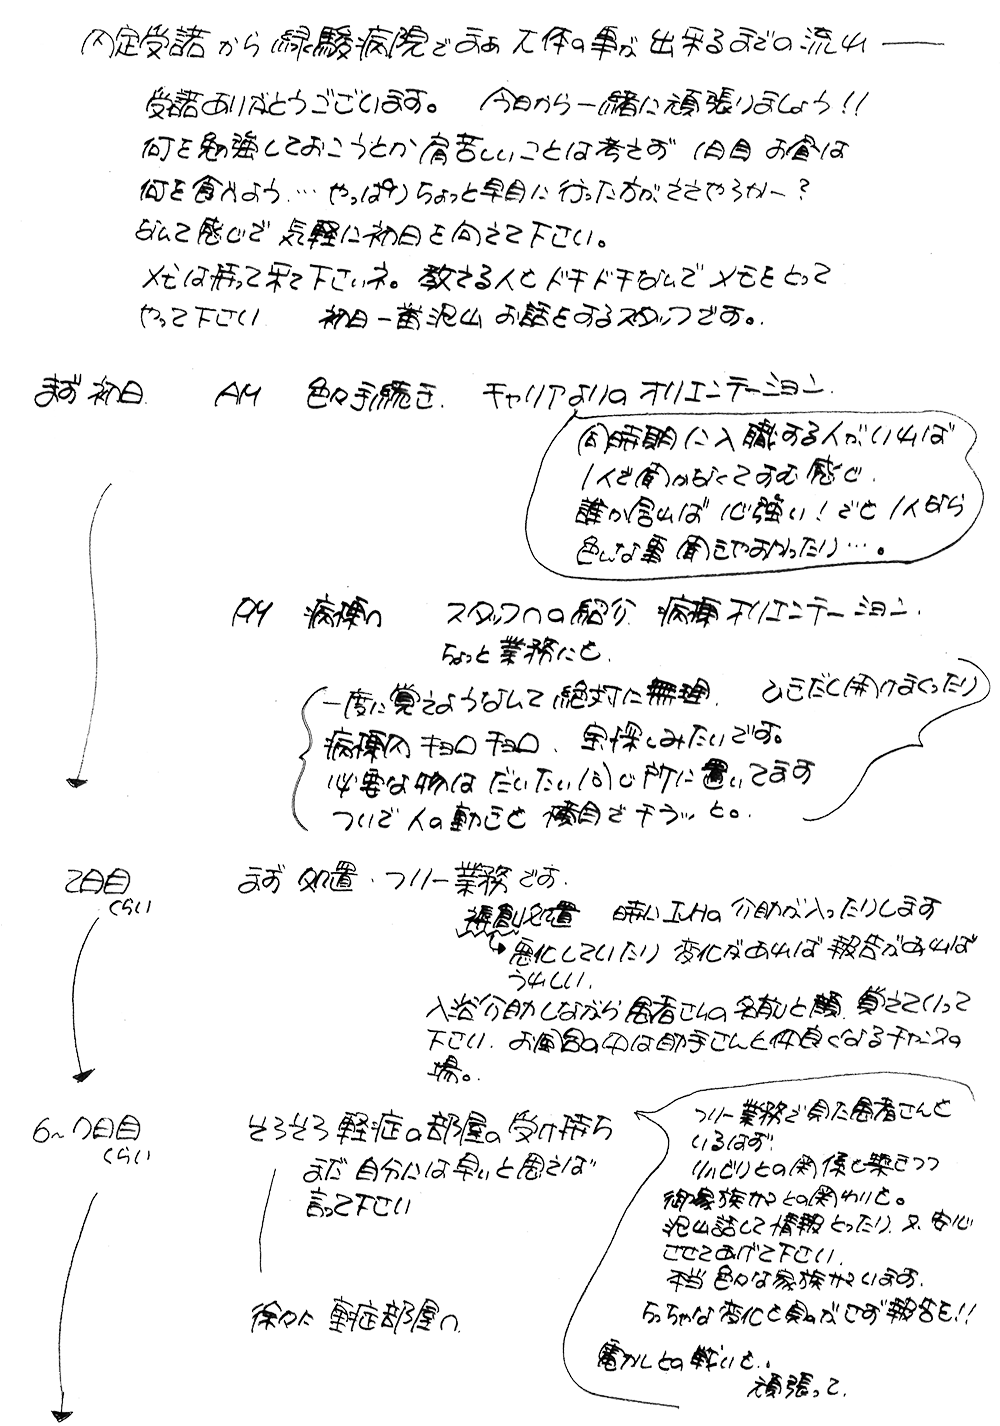 内定受諾から 緑駿病院でまぁ 大体の事が 出来るまでの 流れ
受諾ありがとうございます。 今日から一緒に頑張りましょう!!
何を勉強しておこうとか 肩苦しいことは考えず 1日目 お昼は
何を食べよう… やっぱりちょっと早目に行った方がええやろかー?
なんて感じで 気軽に初日を向えて下さい。
メモは持って来て下さいネ。教える人もドキドキなんでメモをとって
やって下さい 初日一番沢山 お話をするスタッフです。
まず 初日 AM 色々手続き. キャリアよりの オリエンテーション.
同時期に入職する人がいれば
1人を聞かなくてすむ感じ.
誰か居れば 心強い!でも 1人なら
色んな事 聞きやすかったり…。
PM 病棟へ スタッフへの紹介 病棟オリエンテーション.
ちょっと業務にも.
一度に覚えようなんて絶対に無理. ひきだし開けまくったり
病棟内キョロキョロ. 宝探しみたいです。
必要な物は だいたい同じ所に置いてます
ついで 人の動きも 横目で チラッと。
2日目くらい まず 処置・フリー業務です.
褥創処置 時に エンゼルの 介助が入ったりします
悪化していたり 変化があれば 報告があれば
うれしい.
入浴介助しながら患者さんの名前と顔 覚えていって
下さい. お風呂の中は助手さんと仲良くなるチャンスの
場。
6〜7日目くらい そろそろ 軽症の部屋の受け持ち
まだ 自分には早いと思えば
言って下さい
徐々に 重症部屋へ
フリー業務で見た患者さんも
いるはず.
1人1人との関係を築きつつ
御家族様との関わりも。
沢山話して情報とったり、又、安心
させてあげて下さい.
本当 色々な家族様います.
ちっちゃな変化も見のがさず報告を!!
電カルとの戦いも..
頑張って.